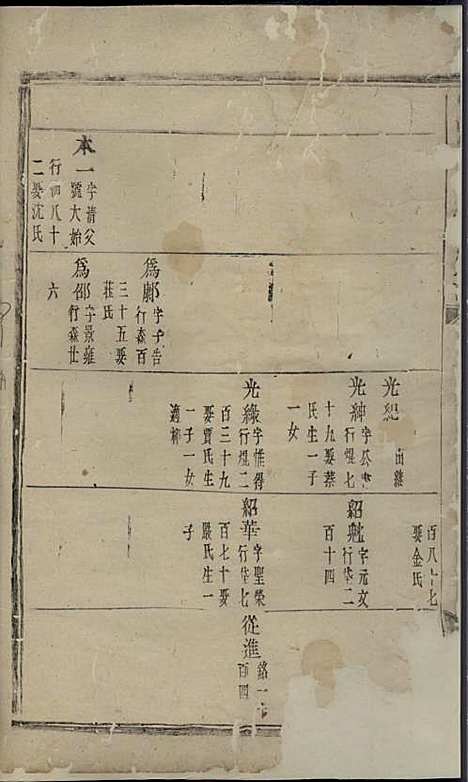 本一字清父
號大始
行百八十
二娶沈氏
爲鄘字子告
行森百
三十五娶
莊氏
爲邵字景雍
行森廿
六
光紀
光紳字
行焜七
十九娶蔡
氏生一子
一女
光緣字惟得
行焜二
百三十九
娶賈氏生
一子一女
適
百八十七
娶金氏
紹魁字元文
行
百十四
紹華字聖榮
行
百七十娶
嚴氏生一
子
從進銘一千
百四